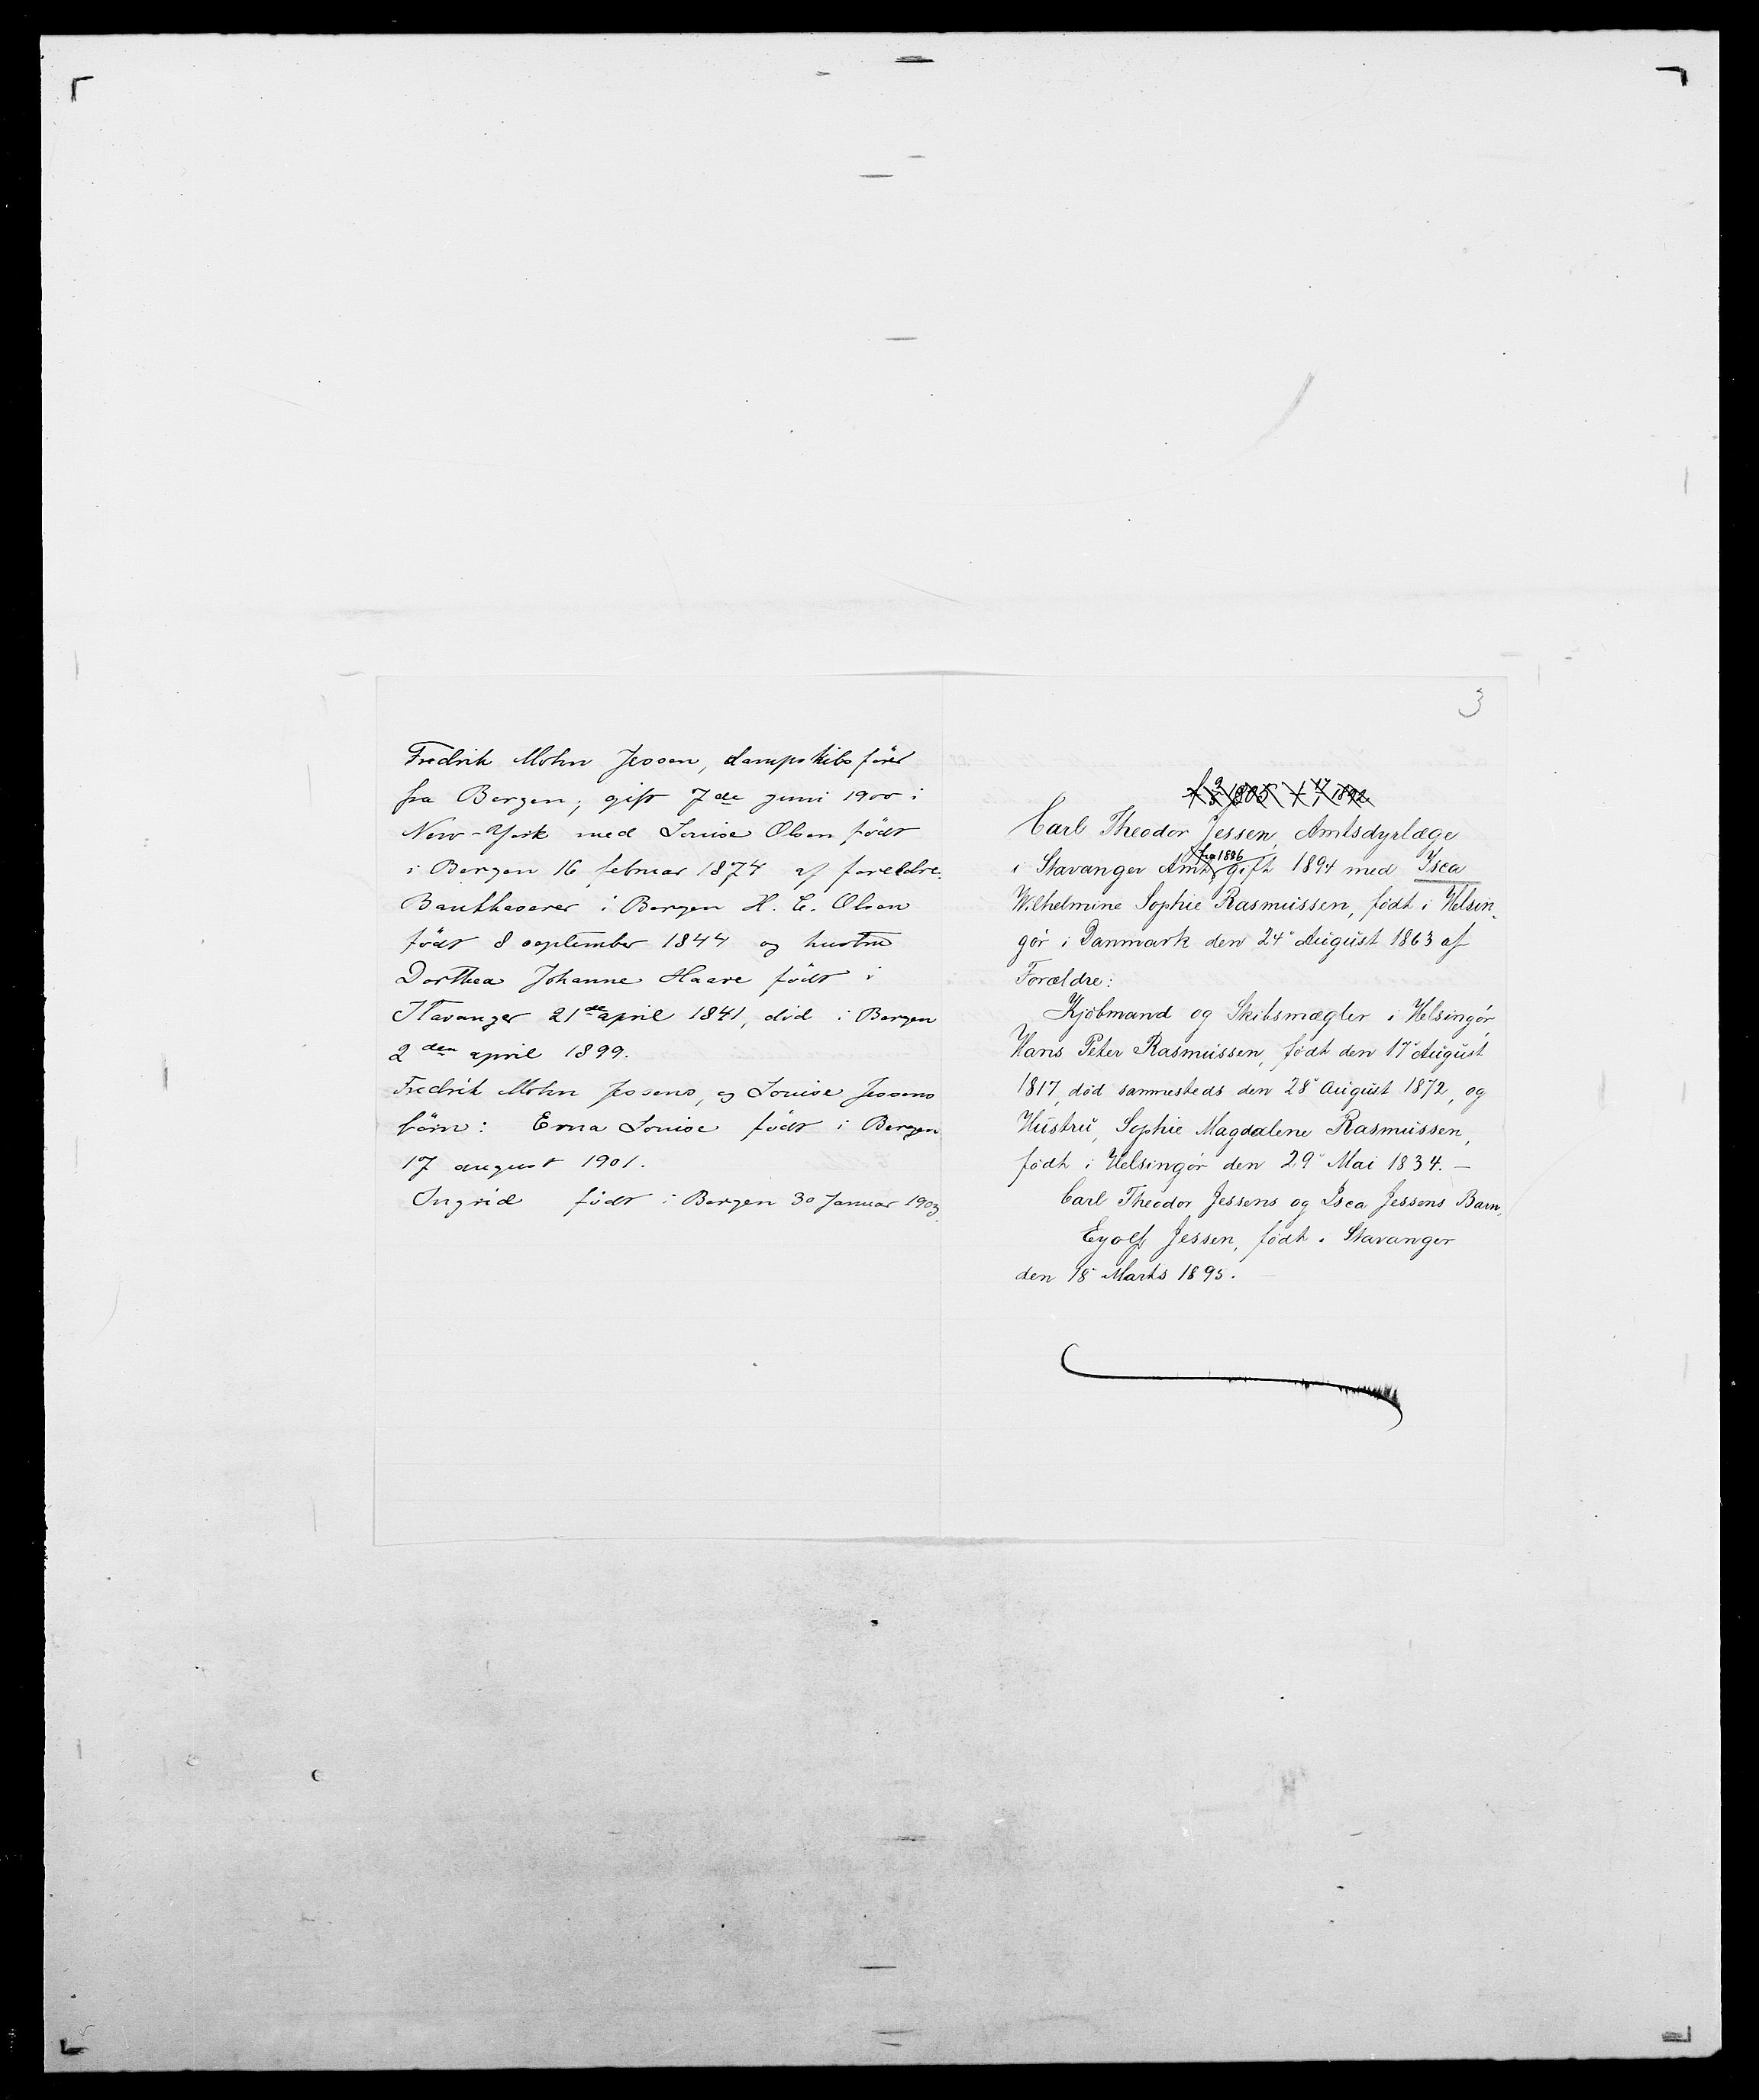 Fredrik Mohn Jessen, dampskibsförer
fra Bergen; gift 7de juni 1900 i
New-York med Louise Olsen födt
i Bergen 16 februar 1874 af foreldre:
Bankkaserer i Bergen H. C. Olsen
födt 8 september 1844 og hustru
Dorthea Johanne Haave födt i
Stavanger 21de april 1841, död i Bergen
2den april 1899.
Fredrik Mohn Jessens, og Louise Jessens
börn: Erna Louise födt i Bergen
17 august 1901.
Ingrid födt i Bergen 30 Januar 1903.
3
Carl Theodor Jessen, Amtsdyrlæge
i Stavanger Amt, fra 1886 gift 1894 med Isca
Wilhelmine Sophie Rasmussen, født i Helsin-
gør i Danmark den 24' August 1863 af
Forældre:
Kjøbmand og Skibsmægler i Helsingør,
Hans Peter Rasmussen, født den 17' August
1817, død sammesteds den 28' August 1872, og
Hustru, Sophie Magdalene Rasmussen,
født i Helsingør den 29' Mai 1834. —
Carl Theodor Jessens og Isca Jessens Barn,
Eyolf Jessen, født i Stavanger
den 18' Marts 1895. —